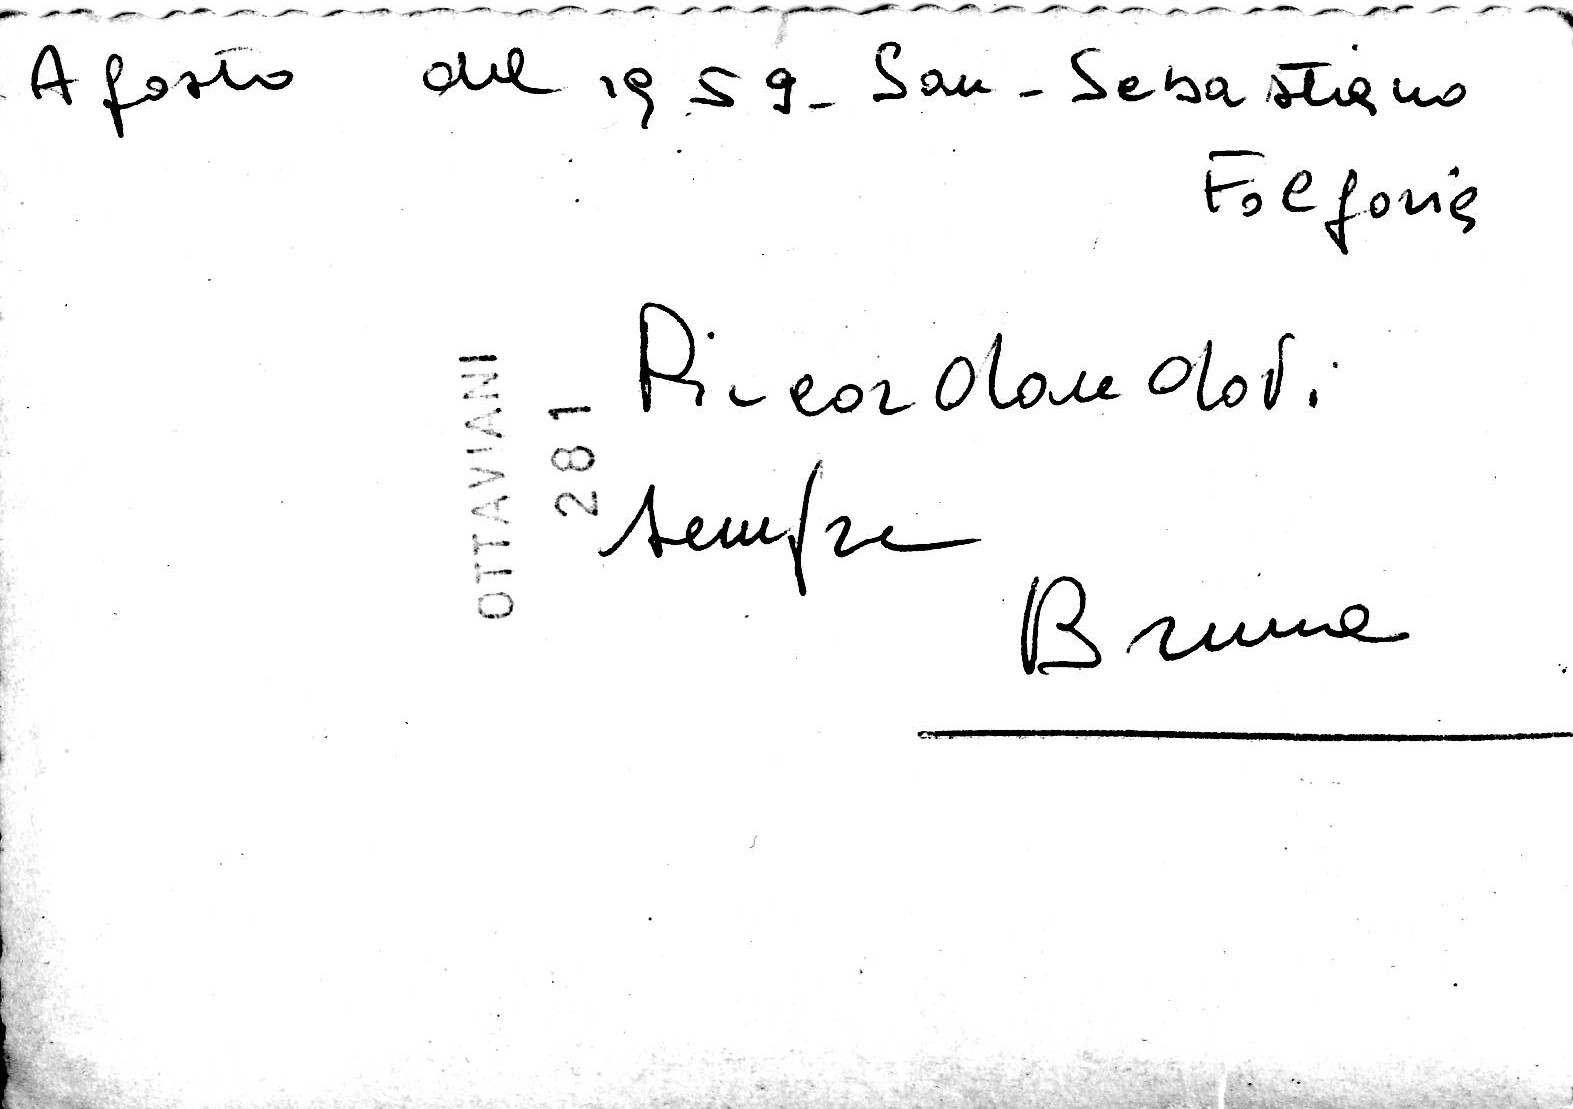 Agosto del 1959 - San - Sebastiano
Folgoria
Riccordandovi
sempre
Bruna
OTTAVIANI
281